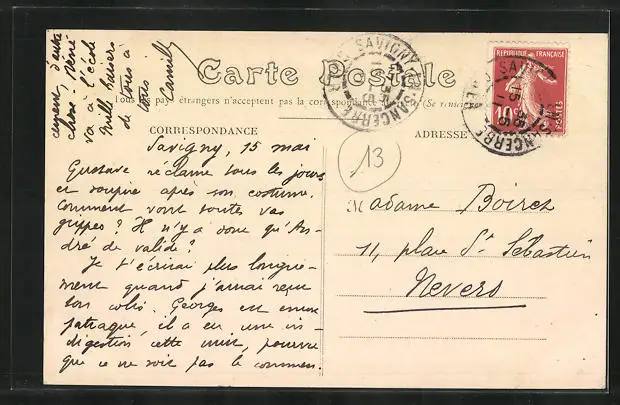 Carte Postale
Tous les pays étrangers n'acceptent pas la correspondance
CORRESPONDANCE
ADRESSE
Savigny, 15 mai
Gustave réclame tous les jours
et soupire après son costume.
Comment vont toutes vos
grippes? Il n'y a donc qu'An-
dré de valide?
Je t'écrirai plus longue-
ment quand j'aurai reçu
ton colis. Georges est encore
patraque, il a eu une in-
digestion cette nuit, pourvu
que ce ne soit pas le commen.
cement d'autre
chose. René
va à l'école
Mille baisers
de tous à
tous
Camille
13
Madame Boirot
11, place St Sébastien
Nevers
SAVIGNY
SANCERRE
REPUBLIQUE FRANÇAISE
10c
POSTES
SANCERRE
15